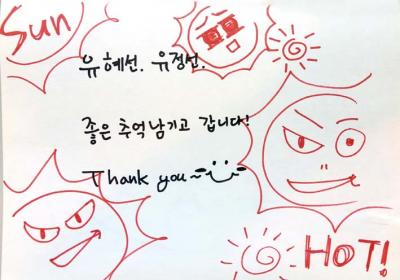 Sun
유혜선. 유정선.
좋은 추억 남기고 갑니다!
Thank you~
HOT!